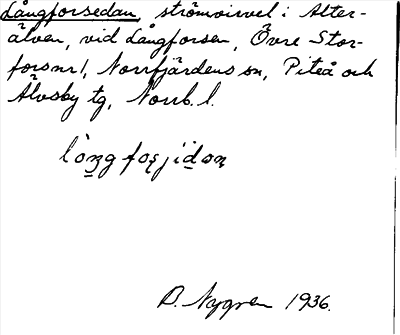 Långforsedan, strömvirvel i Alter-
älven, vid Långforsen, Övre Stor-
fors nr 1, Norrfjärdens sn, Piteå och
Älvsby tg, Norrb. l.
lòn̲gfo̲s̨jid̲ən̨
B. Nygren 1936.